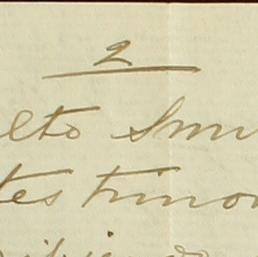 2
elto Smi
tes timon